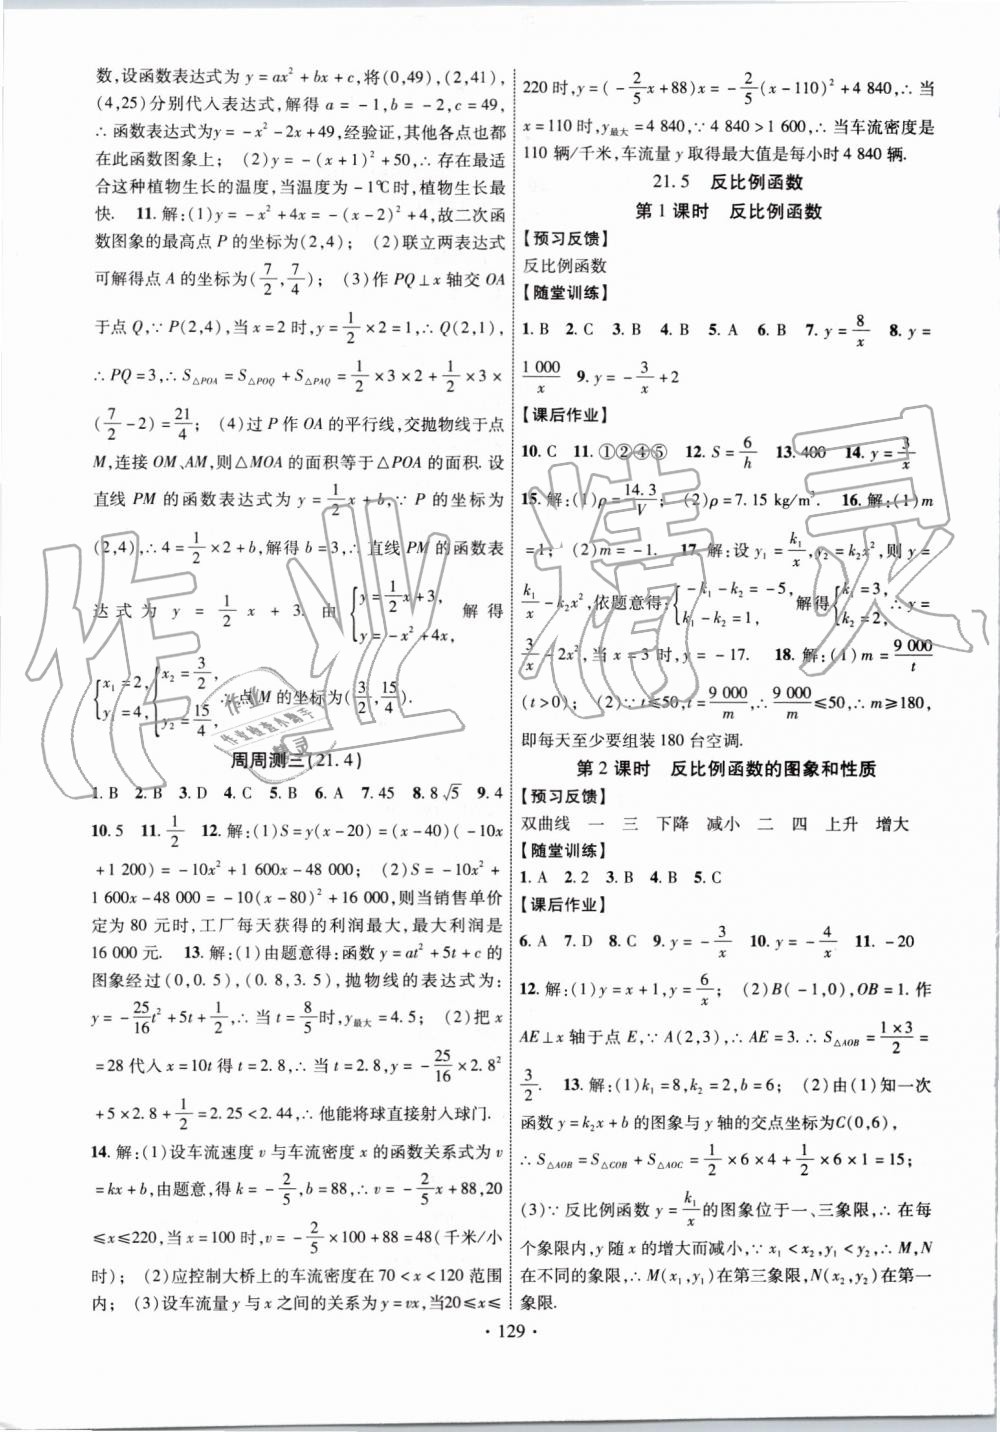 数,设函数表达式为 y=ax²+bx+c,将(0,49),(2,41),
(4,25)分别代入表达式,解得 a=-1,b=-2,c=49,
∴函数表达式为y=-x²-2x+49,经验证,其他各点也都
在此函数图象上; (2)y=-(x+1)²+50,∴存在最适
合这种植物生长的温度,当温度为-1℃时,植物生长最
快. 11.解:(1)y=-x²+4x=-(x-2)²+4,故二次函
数图象的最高点 P 的坐标为(2,4); (2)联立两表达式
可解得点 A 的坐标为(7/2,7/4); (3)作 PQ⊥x 轴交 OA
于点 Q,∵P(2,4),当 x=2 时,y=1/2×2=1,∴Q(2,1),
∴PQ=3,∴S△POA=S△POQ+S△PAQ=1/2×3×2+1/2×3×
(7/2-2)=21/4; (4)过 P 作 OA 的平行线,交抛物线于点
M,连接 OM,AM,则△MOA 的面积等于△POA 的面积.设
直线 PM 的函数表达式为 y=1/2x+b,∵P 的坐标为
(2,4),∴4=1/2×2+b,解得 b=3,∴直线 PM 的函数表
达式为 y=1/2x+3.由{y=1/2x+3, y=-x²+4x, 解得
{x₁=2, y₁=4, {x₂=3/2, y₂=15/4, ∴点 M 的坐标为(3/2,15/4).
周周测三(21.4)
1.B 2.B 3.D 4.C 5.B 6.A 7.45 8.8√5 9.4
10.5 11.1/2 12.解:(1)S=y(x-20)=(x-40)(-10x
+1 200)=-10x²+1 600x-48 000; (2)S=-10x²+
1 600x-48 000=-10(x-80)²+16 000,则当销售单价
定为 80 元时,工厂每天获得的利润最大,最大利润是
16 000 元. 13.解:(1)由题意得:函数 y=at²+5t+c 的
图象经过(0,0.5),(0.8,3.5),抛物线的表达式为:
y=-25/16t²+5t+1/2,∴当 t=8/5时,y最大=4.5; (2)把 x
=28 代入 x=10t 得 t=2.8,∴当 t=2.8 时,y=-25/16×2.8²
+5×2.8+1/2=2.25<2.44,∴他能将球直接射入球门.
14.解:(1)设车流速度 v 与车流密度 x 的函数关系式为 v
=kx+b,由题意,得 k=-2/5,b=88,∴v=-2/5x+88,20
≤x≤220,当 x=100 时,v=-2/5×100+88=48(千米/小
时); (2)应控制大桥上的车流密度在 70<x<120 范围
内; (3)设车流量 y 与 x 之间的关系为 y=vx,当20≤x≤
220 时,y=(-2/5x+88)x=-2/5(x-110)²+4 840,∴当
x=110 时,y最大=4 840,∵4 840>1 600,∴当车流密度是
110 辆/千米,车流量 y 取得最大值是每小时 4 840 辆.
21.5 反比例函数
第 1 课时 反比例函数
【预习反馈】
反比例函数
【随堂训练】
1.B 2.C 3.B 4.B 5.A 6.B 7.y=8/x 8.y=
1 000/x 9.y=-3/x+2
【课后作业】
10.C 11.①②④⑤ 12.S=6/h 13.400 14.y=3/x
15.解:(1)ρ=14.3/V; (2)ρ=7.15 kg/m³. 16.解:(1)m
=1; (2)m=-1. 17.解:设 y₁=k₁/x,y₂=k₂x²,则 y=
k₁/x-k₂x²,依题意得:{-k₁-k₂=-5, k₁-k₂=1, 解得{k₁=3, k₂=2, ∴y=
3/x-2x²,当 x=-3 时,y=-17. 18.解:(1)m=9 000/t
(t>0); (2)∵t≤50,t=9 000/m,∴9 000/m≤50,∴m≥180,
即每天至少要组装 180 台空调.
第 2 课时 反比例函数的图象和性质
【预习反馈】
双曲线 一 三 下降 减小 二 四 上升 增大
【随堂训练】
1.A 2.2 3.B 4.B 5.C
【课后作业】
6.A 7.D 8.C 9.y=-3/x 10.y=-4/x 11.-20
12.解:(1)y=x+1,y=6/x; (2)B(-1,0),OB=1.作
AE⊥x 轴于点 E,∵A(2,3),∴AE=3.∴S△AOB=1×3/2=
3/2. 13.解:(1)k₁=8,k₂=2,b=6; (2)由(1)知一次
函数 y=k₂x+b 的图象与 y 轴的交点坐标为C(0,6),
∴S△AOB=S△COB+S△AOC=1/2×6×4+1/2×6×1=15;
(3)∵反比例函数 y=k₁/x的图象位于一、三象限,∴在每
个象限内,y 随 x 的增大而减小,∵x₁<x₂,y₁<y₂,∴M,N
在不同的象限,∴M(x₁,y₁)在第三象限,N(x₂,y₂)在第一
象限.
·129·
作业精灵
作业
作业检查小助手
精灵